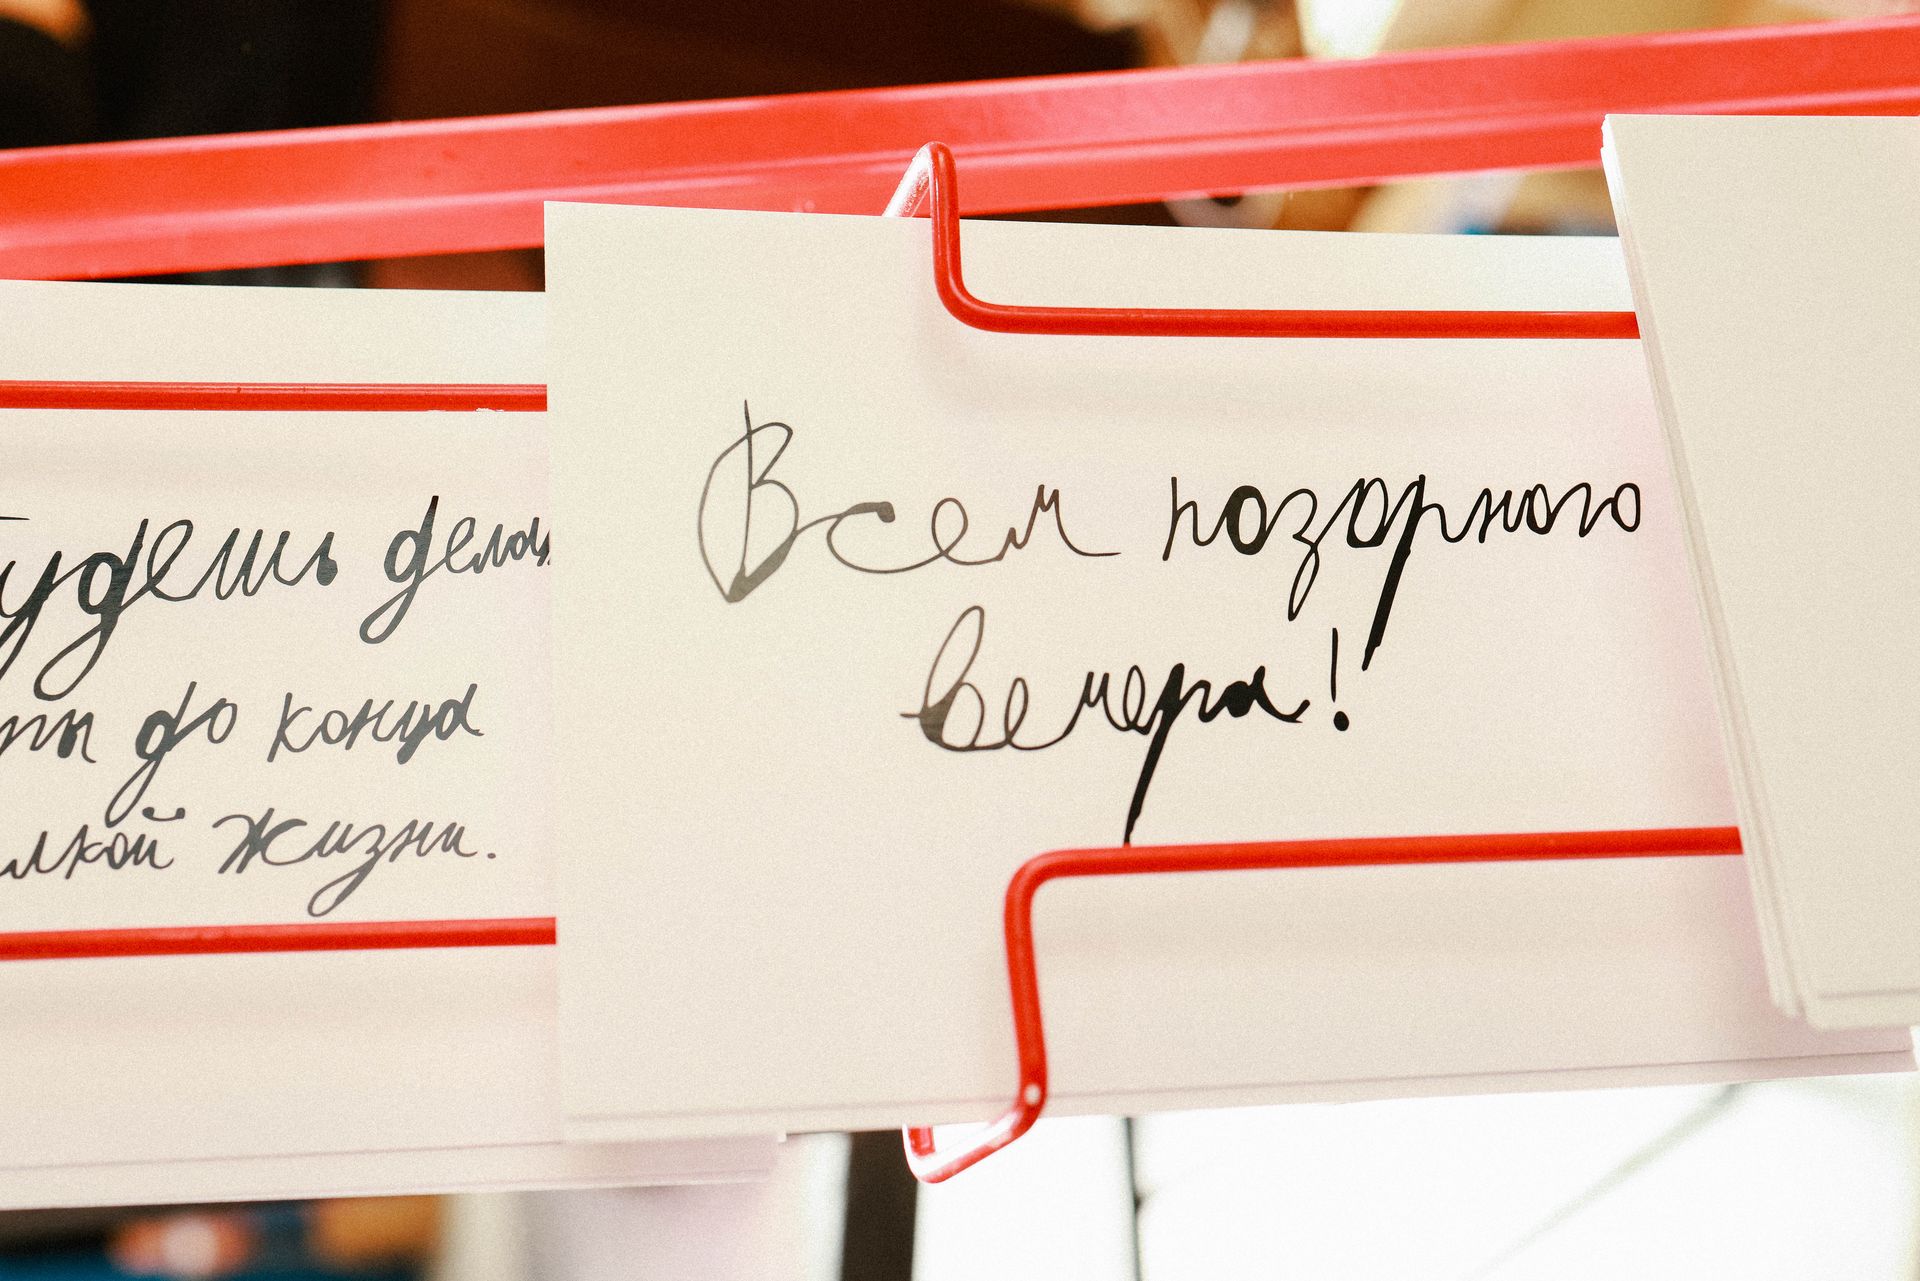 будешь делать
до конца
жизни.
Всем позорного
вечера!